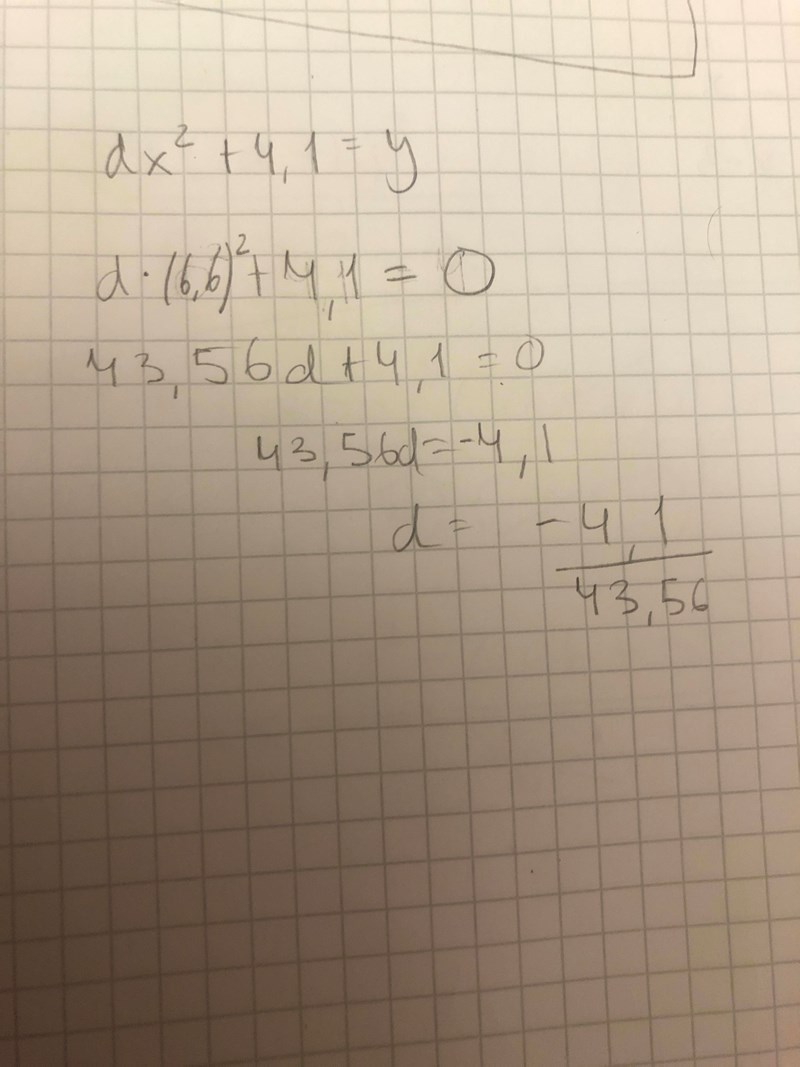 dx² + 4,1 = y
d · (6,6)² + 4,1 = 0
43,56d + 4,1 = 0
43,56d = -4,1
d = -4,1
43,56